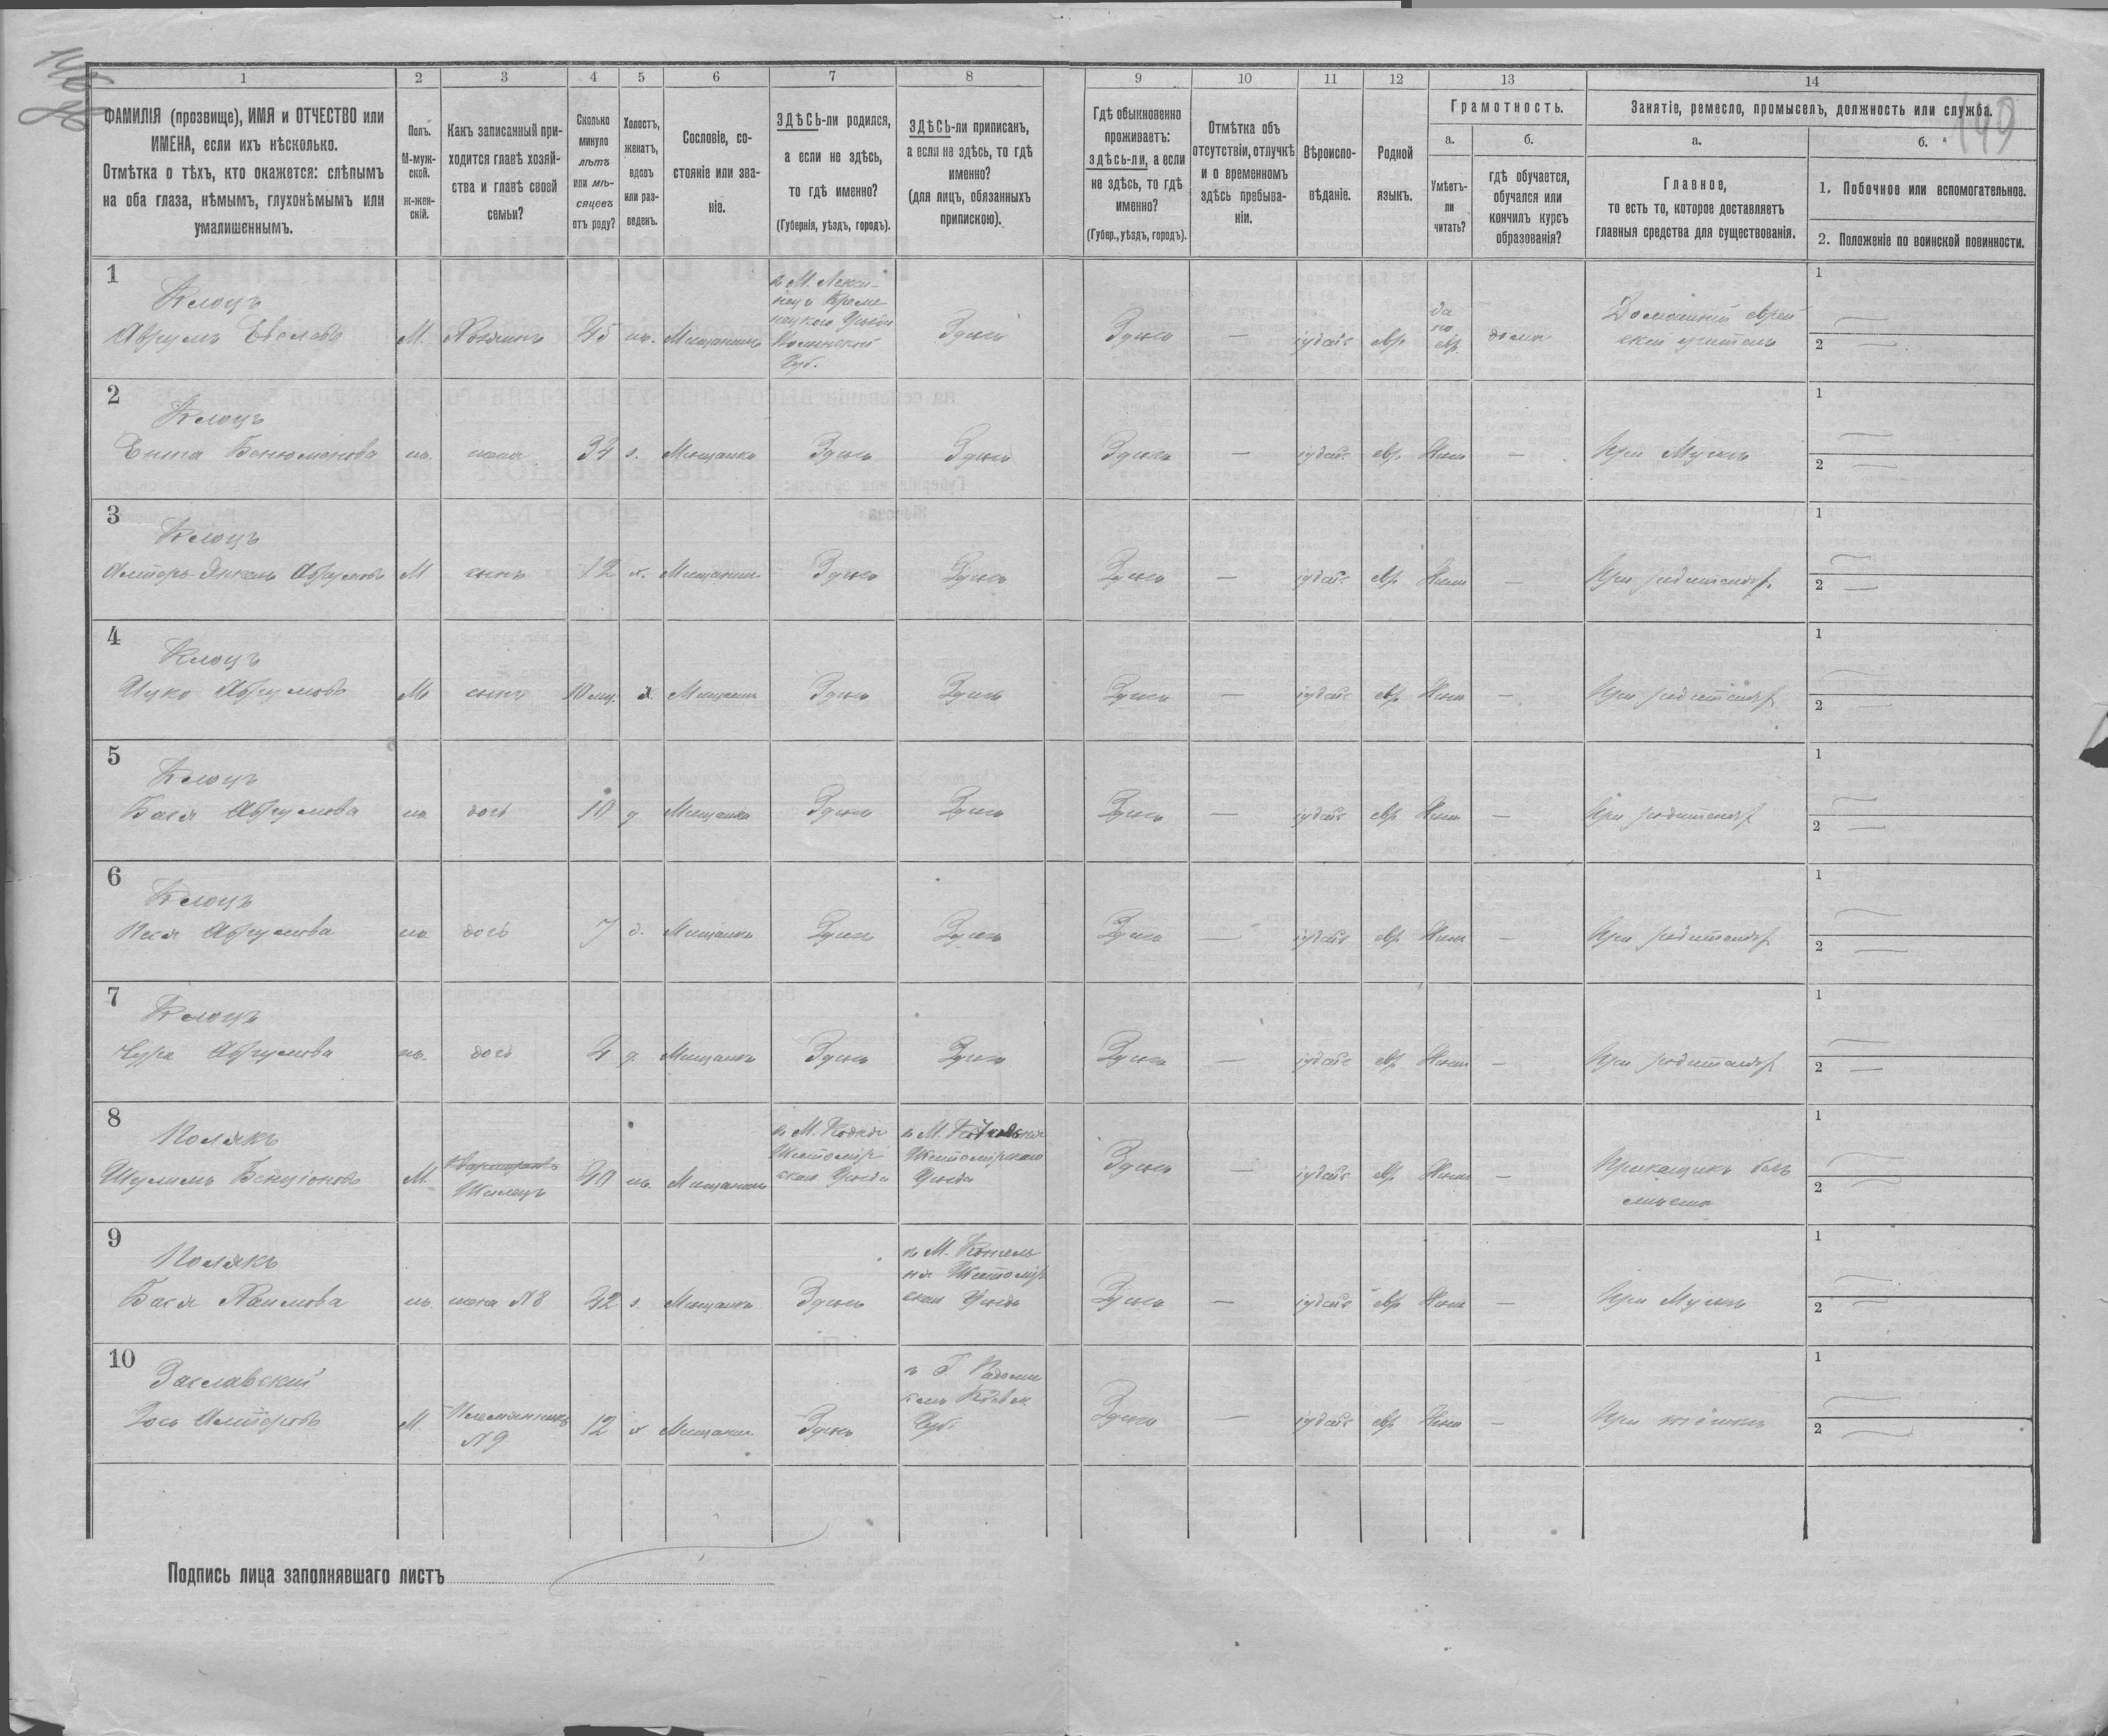 149
1
2
3
4
5
6
7
8
9
10
11
12
13
14
ФАМИЛІЯ (прозвище), ИМЯ и ОТЧЕСТВО или
ИМЕНА, если ихъ нѣсколько.
Отмѣтка о тѣхъ, кто окажется: слѣпымъ
на оба глаза, нѣмымъ, глухонѣмымъ или
умалишеннымъ.
Полъ.
М-муж-
ской.
ж-жен-
скій.
Какъ записанный при-
ходится главѣ хозяй-
ства и главѣ своей
семьи?
Сколько
минуло
лѣтъ
или мѣ-
сяцевъ
отъ роду?
Холостъ,
женатъ,
вдовъ
или раз-
веденъ.
Сословіе, со-
стояніе или зва-
ніе.
ЗДѢСЬ-ли родился,
а если не здѣсь,
то гдѣ именно?
(Губернія, уѣздъ, городъ).
ЗДѢСЬ-ли приписанъ,
а если не здѣсь, то гдѣ
именно?
(для лицъ, обязанныхъ
припискою).
Гдѣ обыкновенно
проживаетъ:
здѣсь-ли, а если
не здѣсь, то гдѣ
именно?
(Губер., уѣздъ, городъ).
Отмѣтка объ
отсутствіи, отлучкѣ
и о временномъ
здѣсь пребыва-
ніи.
Вѣроиспо-
вѣданіе.
Родной
языкъ.
Грамотность.
а.
Умѣетъ-
ли
читать?
б.
гдѣ обучается,
обучался или
кончилъ курсъ
образованія?
Занятіе, ремесло, промыселъ, должность или служба.
а.
Главное,
то есть то, которое доставляетъ
главныя средства для существованія.
б.
1. Побочное или вспомогательное.
2. Положеніе по воинской повинности.
1
Клоцъ
Аврумъ М. Хозяинъ 45 ж. Мещанинъ
Уѣзда
Губ.
Здѣсь Здѣсь — іудейс евр да по евр. дома
Домашній еврей
скій учитель
1 —
2 —
2
Клоцъ
Ента Бенюмонова ж. жена 34 з. Мещанка Здѣсь Здѣсь Здѣсь — іудейс евр Нѣтъ — При Мужѣ
1 —
2 —
3
Клоцъ
Алтеръ Янкель Аврумовъ М сынъ 12 х. Мещанинъ Здѣсь Здѣсь Здѣсь — іудейс евр Нѣтъ — При родителяхъ
1 —
2 —
4
Клоцъ
Ицко Аврумовъ М сынъ 10 мц. х. Мещанин Здѣсь Здѣсь Здѣсь — іудейс евр Нѣтъ — При родителяхъ
1 —
2 —
5
Клоцъ
Бася Аврумова ж дочь 10 д Мещанка Здѣсь Здѣсь Здѣсь — іудейс евр Нѣтъ — При родителяхъ
1 —
2 —
6
Клоцъ
Песя Аврумова ж дочь 7 д. Мещанка Здѣсь Здѣсь Здѣсь — іудейс евр Нѣтъ — При родителяхъ
1 —
2 —
7
Клоцъ
Сура Аврумова ж. дочь 4 д. Мещанка Здѣсь Здѣсь Здѣсь — іудейс евр Нѣтъ — При родителяхъ
1 —
2 —
8
Полякъ
Шулимъ Бенціоновъ М. Жилецъ 40 ж. Мещанинъ
в М. Кодня
Житомір
скаго Уѣзда
в М.
Житомірскаго
Уѣзда
Здѣсь — іудейс евр Нѣтъ —
Прикащикъ безъ
мѣста
1 —
2 —
9
Полякъ
Бася Хаимова ж. жена № 8 42 з. Мещанка Здѣсь
в М. Котель
ня Житомір
скаго Уѣзда
Здѣсь — іудейс евр Нѣтъ — При Мужѣ
1 —
2 —
10
Заславскій
Іось Алтеровъ М. Племянникъ
№ 9
12 х Мещанин Здѣсь
в Г. Радомы
сль Кіевск
Губ.
Здѣсь — іудейс евр Нѣтъ — При
1 —
2 —
Подпись лица заполнявшаго листъ